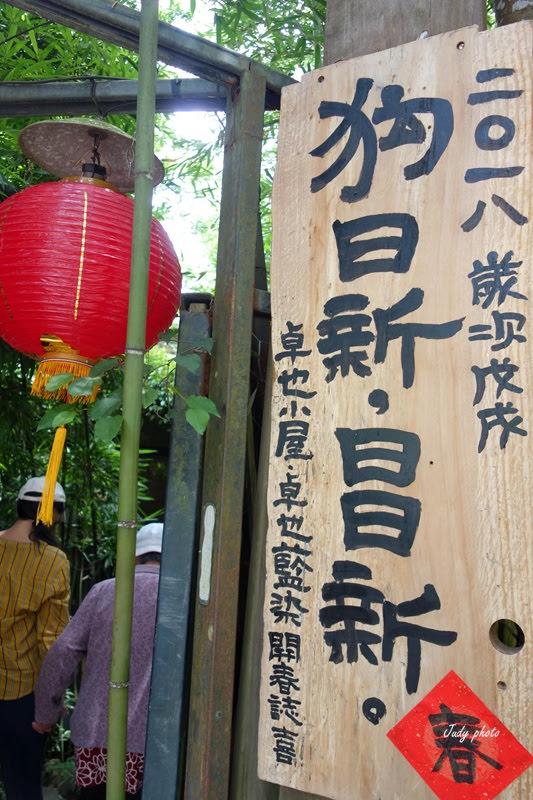 二〇一八 歲次戊戌
狗日新，日日新。
卓也小屋．卓也藍染 開春誌喜
春
Judy photo